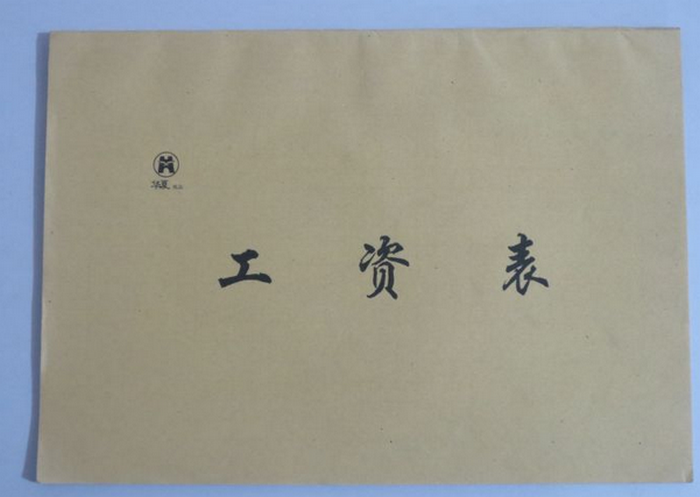 华夏
工资表